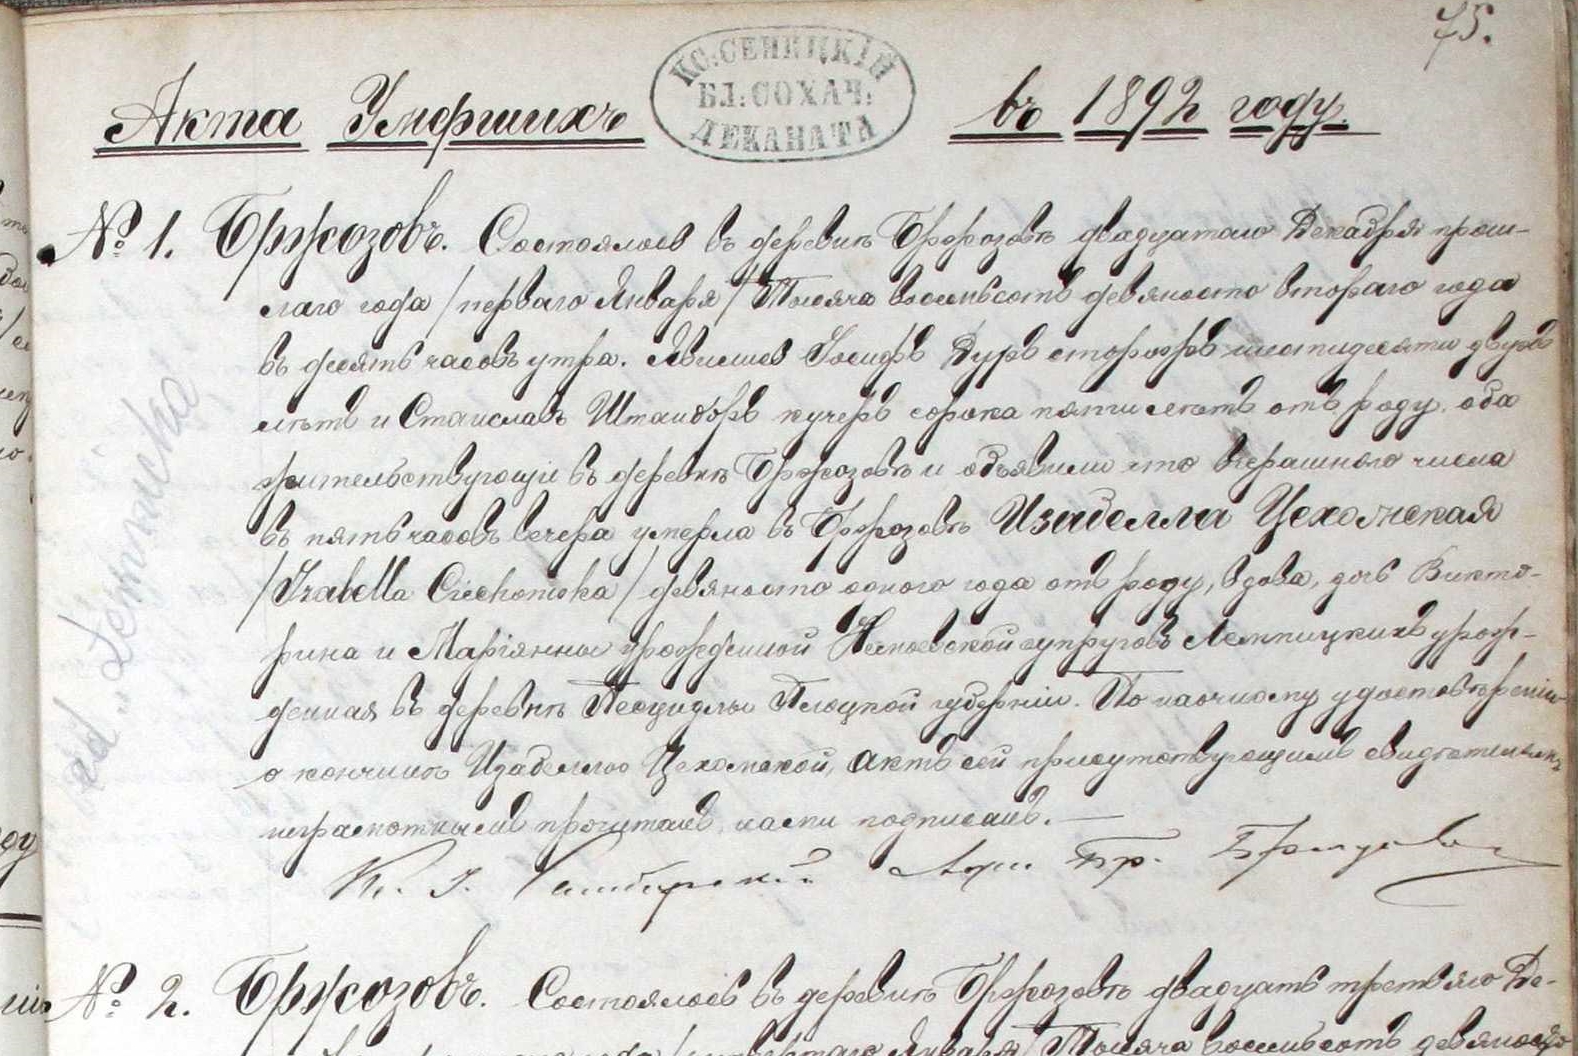 75.
КС: СЕНИЦКІЙ
БЛ: СОХАЧ:
ДЕКАНАТА
Акта Умершихъ въ 1892 году.
№ 1. Бржозовъ. Состоялось въ деревнѣ Бржозовѣ двадцатаго Декабря прош-
лаго года /перваго Января/ Тысяча восемьсотъ девяносто втораго года
въ десять часовъ утра. Явились Іосифъ Дуръ сторожъ шестидесяти двухъ
лѣтъ и Станиславъ Штандоръ кучеръ сорока пяти лѣтъ отъ роду, оба
жительствующіе въ деревнѣ Бржозовѣ и объявили что вчерашняго числа
въ пять часовъ вечера умерла въ Бржозовѣ Изабелла Цехомская
/Izabella Ciechomska/ девяносто одного года отъ роду, вдова, дочь Викто-
рина и Маріянны урожденной супруговъ Лемпицкихъ урож-
денная въ деревнѣ Плоцкой губерніи. По наочному удостовѣреніи
о кончинѣ Изабеллы Цехомской, актъ сей присутствующимъ свидѣтелямъ
неграмотнымъ прочитанъ, нами подписанъ.
№ 2. Бржозовъ. Состоялось въ деревнѣ Бржозовѣ двадцать третьяго Де-
года Января/ Тысяча восемьсотъ девяносто
zd. Łempicka